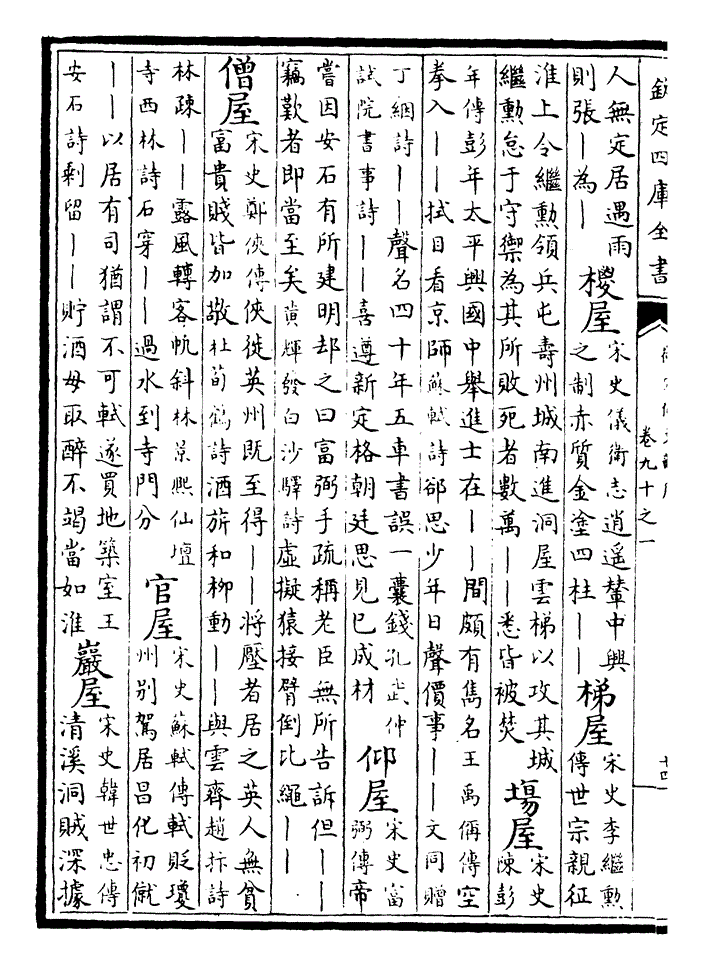 欽定四庫全書
卷九十之一
人無定居遇雨
則張｜為｜
椶屋
宋史儀衛志逍遥輦中興
之制赤質金塗四柱｜｜
梯屋
宋史李繼勳
傳世宗親征
淮上令繼勳領兵屯壽州城南進洞屋雲梯以攻其城
繼勳怠于守禦為其所敗死者數萬｜｜悉皆被焚
場屋
宋史
陳彭
年傳彭年太平興國中舉進士在｜｜間頗有雋名王禹偁傳空
拳入｜｜拭目看京師蘇軾詩卻思少年日聲價事｜｜文同贈
丁綑詩｜｜聲名四十年五車書誤一囊錢孔武仲
試院書事詩｜｜喜遵新定格朝廷思見已成材
仰屋
宋史富
弼傳帝
嘗因安石有所建明却之曰富弼手疏稱老臣無所告訴但｜｜
竊歎者即當至矣黄輝發白沙驛詩虚擬猿接臂倒比繩｜｜
僧屋
宋史鄭俠傳俠徙英州既至得｜｜將壓者居之英人無貧
富貴賤皆加敬杜荀鶴詩酒旂和柳動｜｜與雲齊趙抃詩
林疎｜｜露風轉客帆斜林景熙仙壇
寺西林詩石穿｜｜過水到寺門分
官屋
宋史蘇軾傳軾貶瓊
州别駕居昌化初僦
｜｜以居有司猶謂不可軾遂買地築室王
安石詩剰留｜｜貯酒母取醉不竭當如淮
巖屋
宋史韓世忠傳
清溪洞賊深據